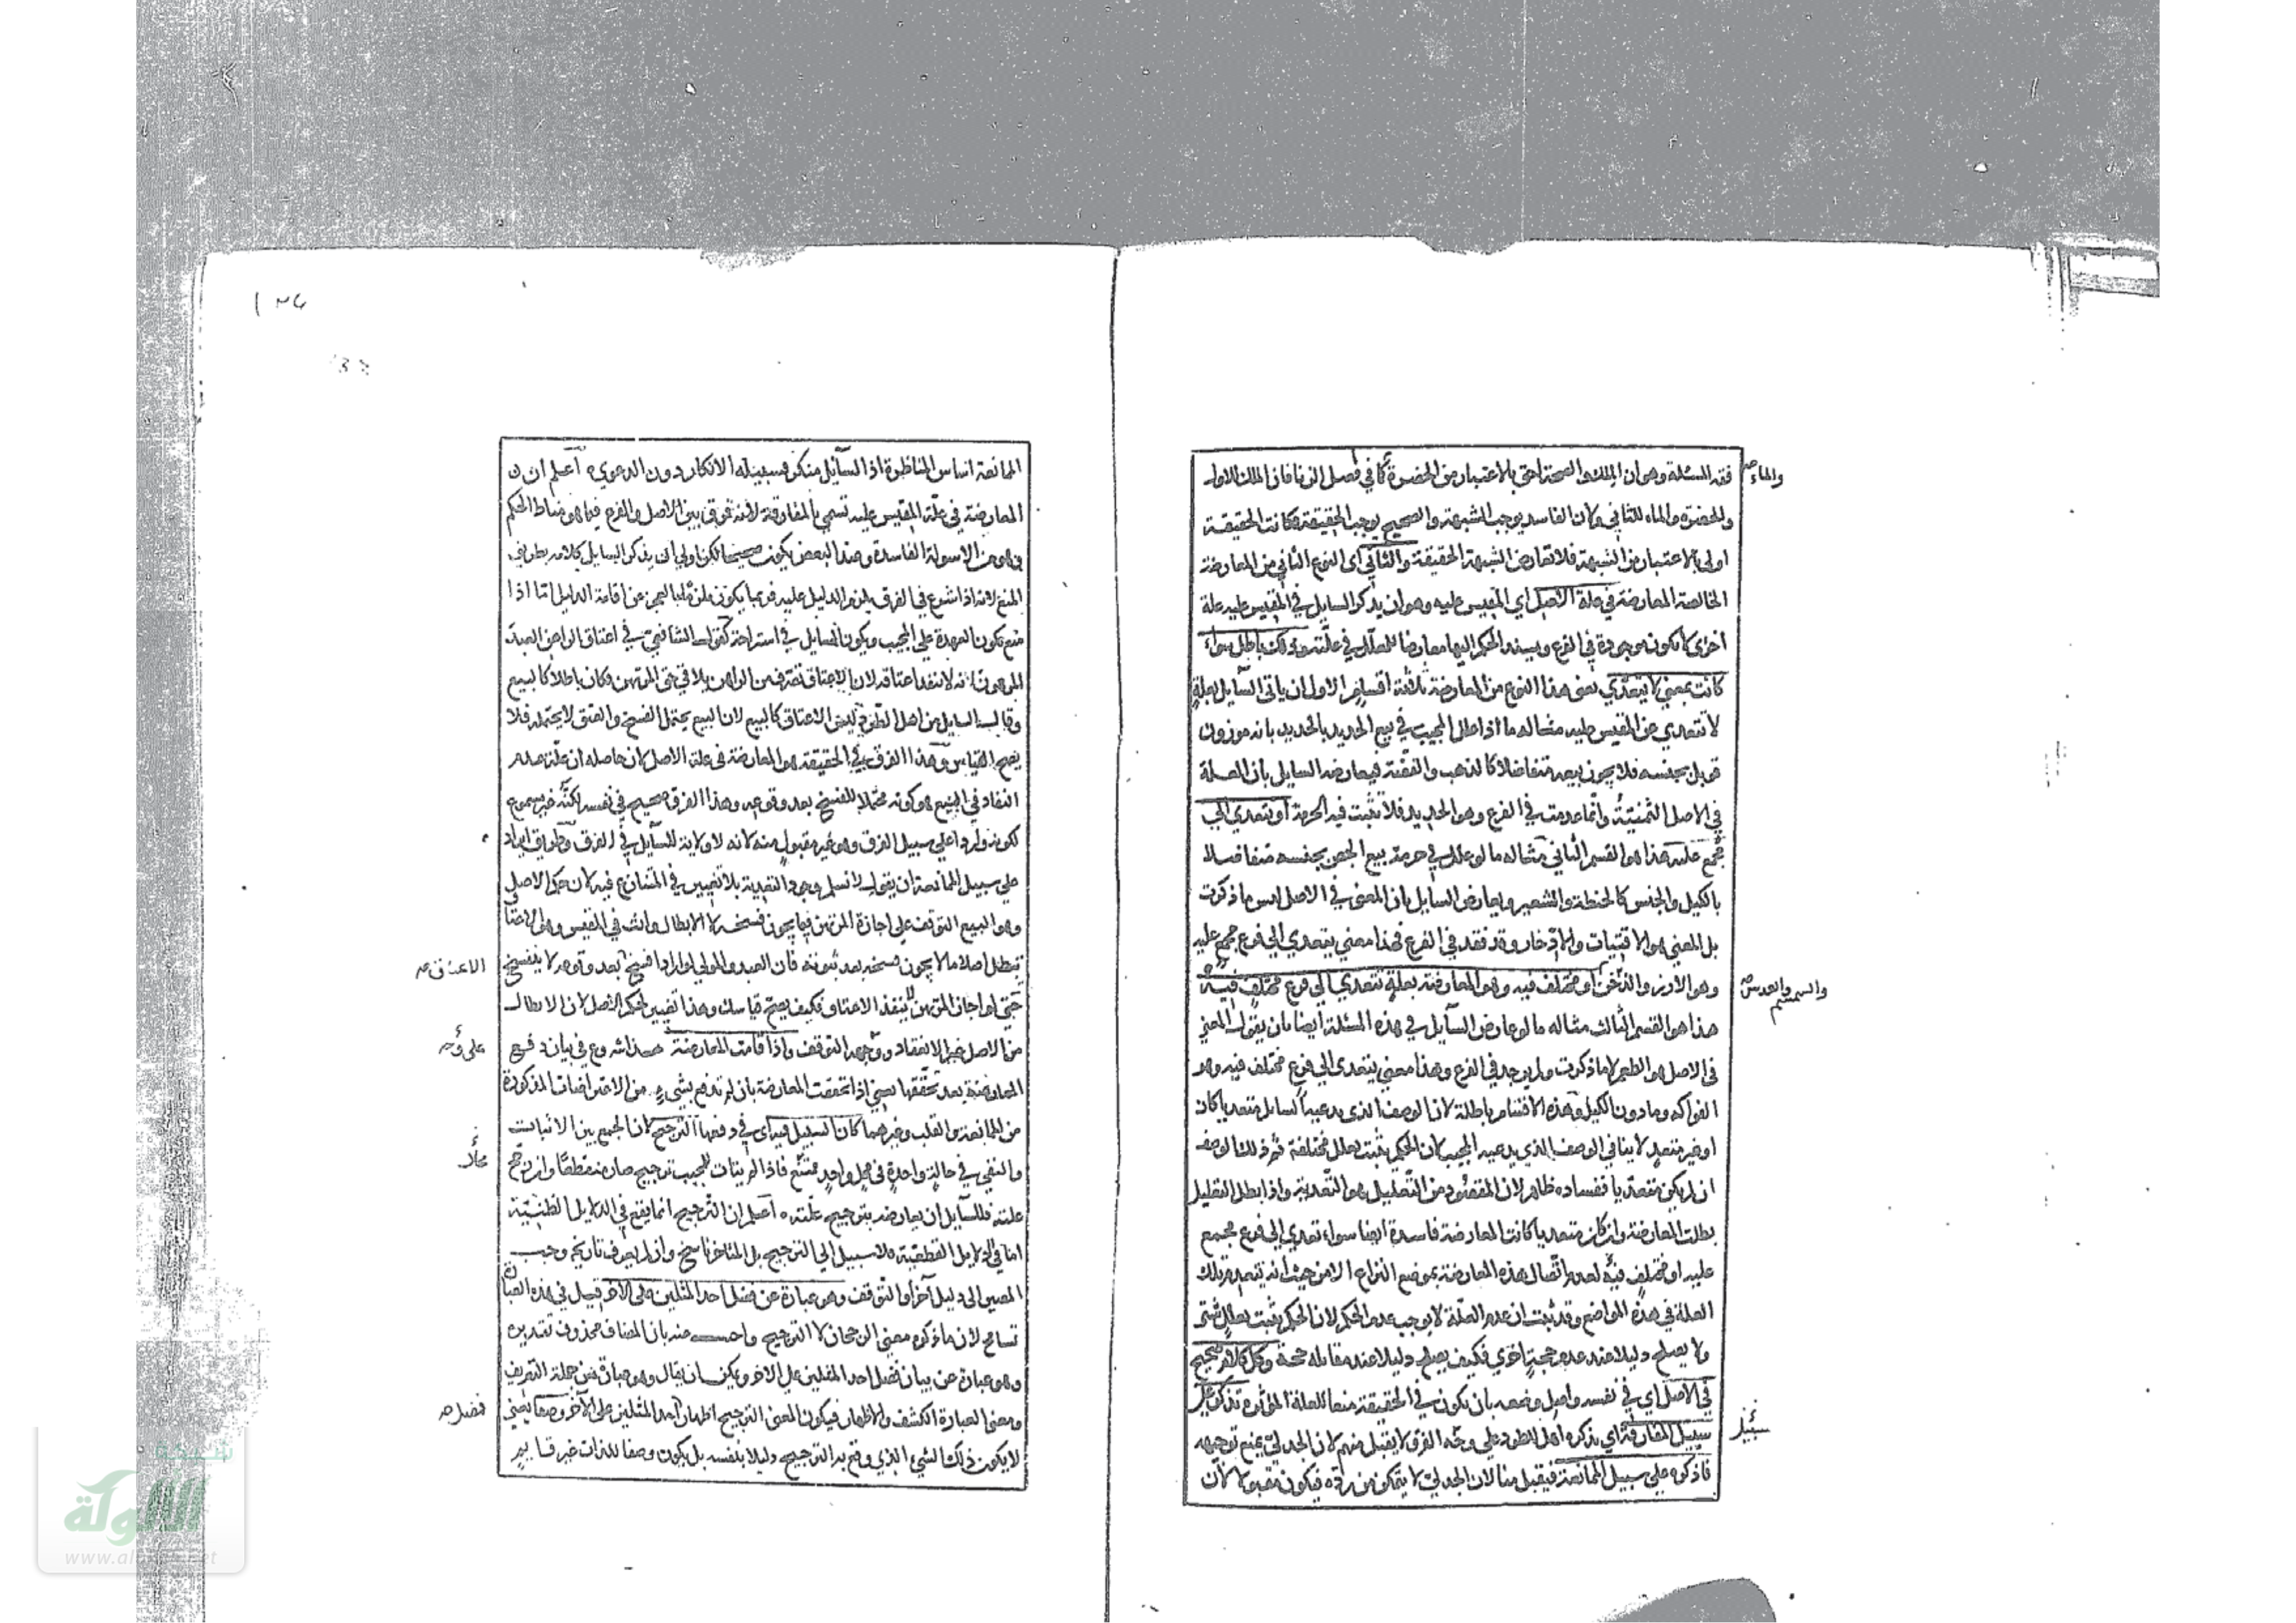 فقه المسئلة وهو ان الملك والصحة احق بالاعتبار من الحضرة كما في فصل الزنا فان الملك للاول
والماء
والحضرة والماء للثاني ولان الفاسد يوجب الشبهة والصحيح يوجب الحقيقة فكانت الحقيقة
اولى بالاعتبار من الشبهة فلا تعارض الشبهة الحقيقة والثاني اى النوع الثاني من المعارضة
الخالصة المعارضة في علة الاصل اي المقيس عليه وهو ان يذكر السايل في المقيس عليه علة
اخرى لا تكون موجودة في الفرع ويسند الحكم اليها معارضا للمعلل في علته وذلك باطل سواء
كانت بمعنى لا يتعدى يعني هذا النوع من المعارضة ثلاثة اقسام الاول ان ياتى السايل بعلة
لا تتعدي عن المقيس عليه مثاله ما اذا علل المجيب في بيع الحديد بالحديد بانه موزون
قوبل بجنسه فلا يجوز بيعه متفاضلا كالذهب والفضة فيعارضه السايل بان العلة
في الاصل الثمنية وانما عدمت في الفرع وهو الحديد فلا تثبت فيه الحرمة او يتعدي الي
مجمع عليه هذا هو القسم الثاني مثاله ما لو علل في حرمة بيع الجص بجنسه متفاضلا
بالكيل والجنس كالحنطة والشعير ويعارض السايل بان المعنى في الاصل ليس ما ذكرت
بل المعنى هو الاقتيات والادخار وقد فقد في الفرع فهذا معنى يتعدي الي فرع مجمع عليه
وهو الارز والدخن او مختلف فيه وهو المعارضة بعلة تتعدي الي فرع مختلف فيه
والسمسم والعدس
هذا هو القسم الثالث مثاله ما لو عارض السايل في هذه المسئلة ايضا بان يقول المعنى
في الاصل هو الطعم لا ما ذكرت ولم يوجد في الفرع وهذا معنى يتعدى الى فرع مختلف فيه وهو
الفواكه وما دون الكيل وهذه الاقسام باطلة لان الوصف الذى يدعيه السايل متعديا كان
او غير متعد لا ينافي الوصف الذي يدعيه المجيب لان الحكم يثبت بعلل مختلفة ثم ذلك الوصف
ان لم يكن متعديا ففساده ظاهر لان المقصود من التعليل هو التعدية واذا بطل التعليل
بطلت المعارضة وان كان متعديا كانت المعارضة فاسدة ايضا سواء تعدي الي فرع مجمع
عليه او مختلف فيه لعدم اتصال هذه المعارضة بموضع النزاع الا من حيث انه يتعدم تلك
العلة في هذه المواضع وقد ثبت ان عدم العلة لا يوجب عدم الحكم لان الحكم يثبت بعلل شتى
ولا يصلح دليلا عند عدم حجة اخري فكيف يصلح دليلا عند مقابلة حجة وكل كلام صحيح
في الاصل اي في نفسه واصل وضعه بان يكون في الحقيقة منعا للعلة المؤثرة تذكر على
سبيل المفارقة اي يذكره اهل الطرد على وجه الفرق لا يقبل منهم لان الجدلي يمنع توجيهه
سبيل
فاذكره على سبيل الممانعة فيقبل منا لان الجدلي لا يتمكن من رده فيكون مقبولا لان
الممانعة اساس المناظرة اذ السايل منكر فسبيله الانكار دون الدعوي اعلم ان
المعارضة في علة المقيس عليه تسمى بالمفارقة لانه فرق بين الاصل والفرع فيما هو مناط الحكم
فهو من الاسولة الفاسدة وعند البعض يكون صحيحا لكن اولى ان يذكر السايل كلامه بطريق
المنع لانه اذا شرع في الفرق يلزم الدليل عليه فربما يكون ملزما بالعجز عن اقامة الدليل اما اذا
منع يكون العهدة على المجيب ويكون السايل في استراحة كقول الشافعي في اعتاق الراهن العبد
المرهون انه لا ينفذ اعتاقه لان الاعتاق تصرف من الراهن يلاقي حق المرتهن فكان باطلا كالبيع
وقال السايل من اهل الطرد ليس الاعتاق كالبيع لان البيع يحتمل الفسخ والعتق لا يحتمله فلا
يصح القياس وهذا الفرق في الحقيقة هو المعارضة في علة الاصل لان حاصله ان علة عدم
النفاد في البيع هو كونه محتملا للفسخ بعد وقوعه وهذا الفرق صحيح في نفسه لكنه غير مسموع
لكونه واردا علي سبيل الفرق وهو غير مقبول منه لانه لا ولاية للسايل في الفرق وطريق ايراده
علي سبيل الممانعة ان يقول لا نسلم وجود التعدية بلا تغيير في المتنازع فيه لان حكم الاصل
وهو البيع التوقف علي اجازة المرتهن فيما يجوز فسخه لا الابطال وانت في المقيس وهو الاعتاق
تبطل اصلا ما لا يجوز فسخه بعد ثبوته فان العبد والمولي لو ارادا فسخ بعد وقوعه لا ينفسخ
الاعتاق صح
حتى لو اجاز المرتهن لا ينفذ الاعتاق فكيف يصح قياسك وهذا تغيير لحكم الاصل لان الابطال
من الاصل غير الانعقاد ووجهه التوقف واذا قامت المعارضة هذا شروع في بيان دفع
على وجه
المعارضة بعد تحققها يعني اذا تحققت المعارضة بان لم تدفع بشيء من الاعتراضات المذكورة
من الممانعة والقلب وغيرهما كان السبيل فيه اى في دفعها الترجيح لان الجمع بين الاثبات
والنفي في حالة واحدة في محل واحد ممتنع فاذا لم يتات للمجيب ترجيح صار منقطعا وان رجح
محال
علته فللسايل ان يعارضه بترجيح علته اعلم ان الترجيح انما يقع في الدلايل الظنية
اما في الدلايل القطعية فلا سبيل الي الترجيح بل المتاخر ناسخ وان لم يعرف تاريخ وجب
المصير الى دليل آخر او التوقف وهو عبارة عن فضل احد المثلين على الاخر قيل في هذه العبارة
تسامح لان ما ذكره معنى الرجحان لا الترجيح واجيب عنه بان المضاف محذوف تقديره
وهو عبارة عن بيان فضل احد المثلين على الاخر ويمكن ان يقال وهو عبارة من جملة التعريف
ومعنى العبارة الكشف والاظهار فيكون المعنى الترجيح اظهار احد المثلين على الآخر وصفا يعني
فضل صح
لا يكون ذلك الشيء الذي وقع به الترجيح دليلا بنفسه بل يكون وصفا للذات غير قايم
شبكة
الألوكة
www.alukah.net